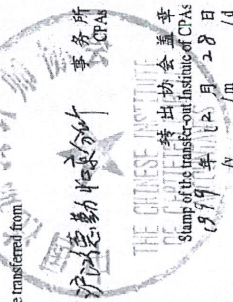 e transferred from
沪江德勤北京分所 事务所
CPAs
THE CHINESE INSTITUTE
转出协会盖章
Stamp of the transfer-out Institute of CPAs
1999年12月28日
/y /m /d